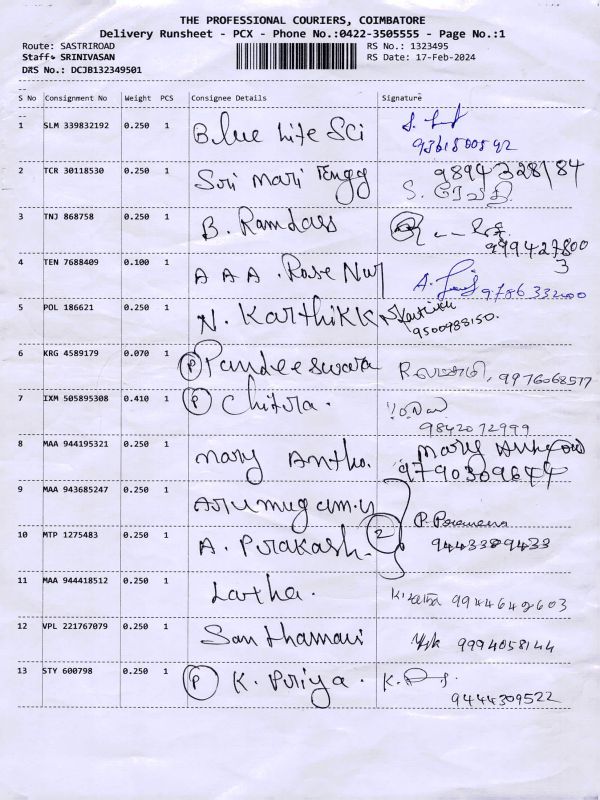 THE PROFESSIONAL COURIERS, COIMBATORE
Delivery Runsheet - PCX - Phone No.:0422-3505555 - Page No.:1
Route: SASTRIROAD RS No.: 1323495
Staff: SRINIVASAN RS Date: 17-Feb-2024
DRS No.: DCJB132349501
S No Consignment No Weight PCS Consignee Details Signature
1 SLM 339832192 0.250 1 Blue Life Sci
9361800592
2 TCR 30118530 0.250 1 Sri Mari Engg 9894328184
S. தேவி
3 TNJ 868758 0.250 1 B. Ramdass
9994278003
4 TEN 7688409 0.100 1 A A A . Rose Nur
9786332000
5 POL 186621 0.250 1 N. Karthikk S Karthik
9500988150.
6 KRG 4589179 0.070 1 P Pandeeswara 9976068577
7 IXM 505895308 0.410 1 P Chitra .
9842072999
8 MAA 944195321 0.250 1 Mary Antho. Mary
9790309644
9 MAA 943685247 0.250 1 Arumugam.u
10 MTP 1275483 0.250 1 A. Prakash. 2 P. 
9443389433
11 MAA 944418512 0.250 1 Latha . K. Latha 9944642603
12 VPL 221767079 0.250 1 Santhamani 9994058144
13 STY 600798 0.250 1 P K. Priya . K.
9444309522